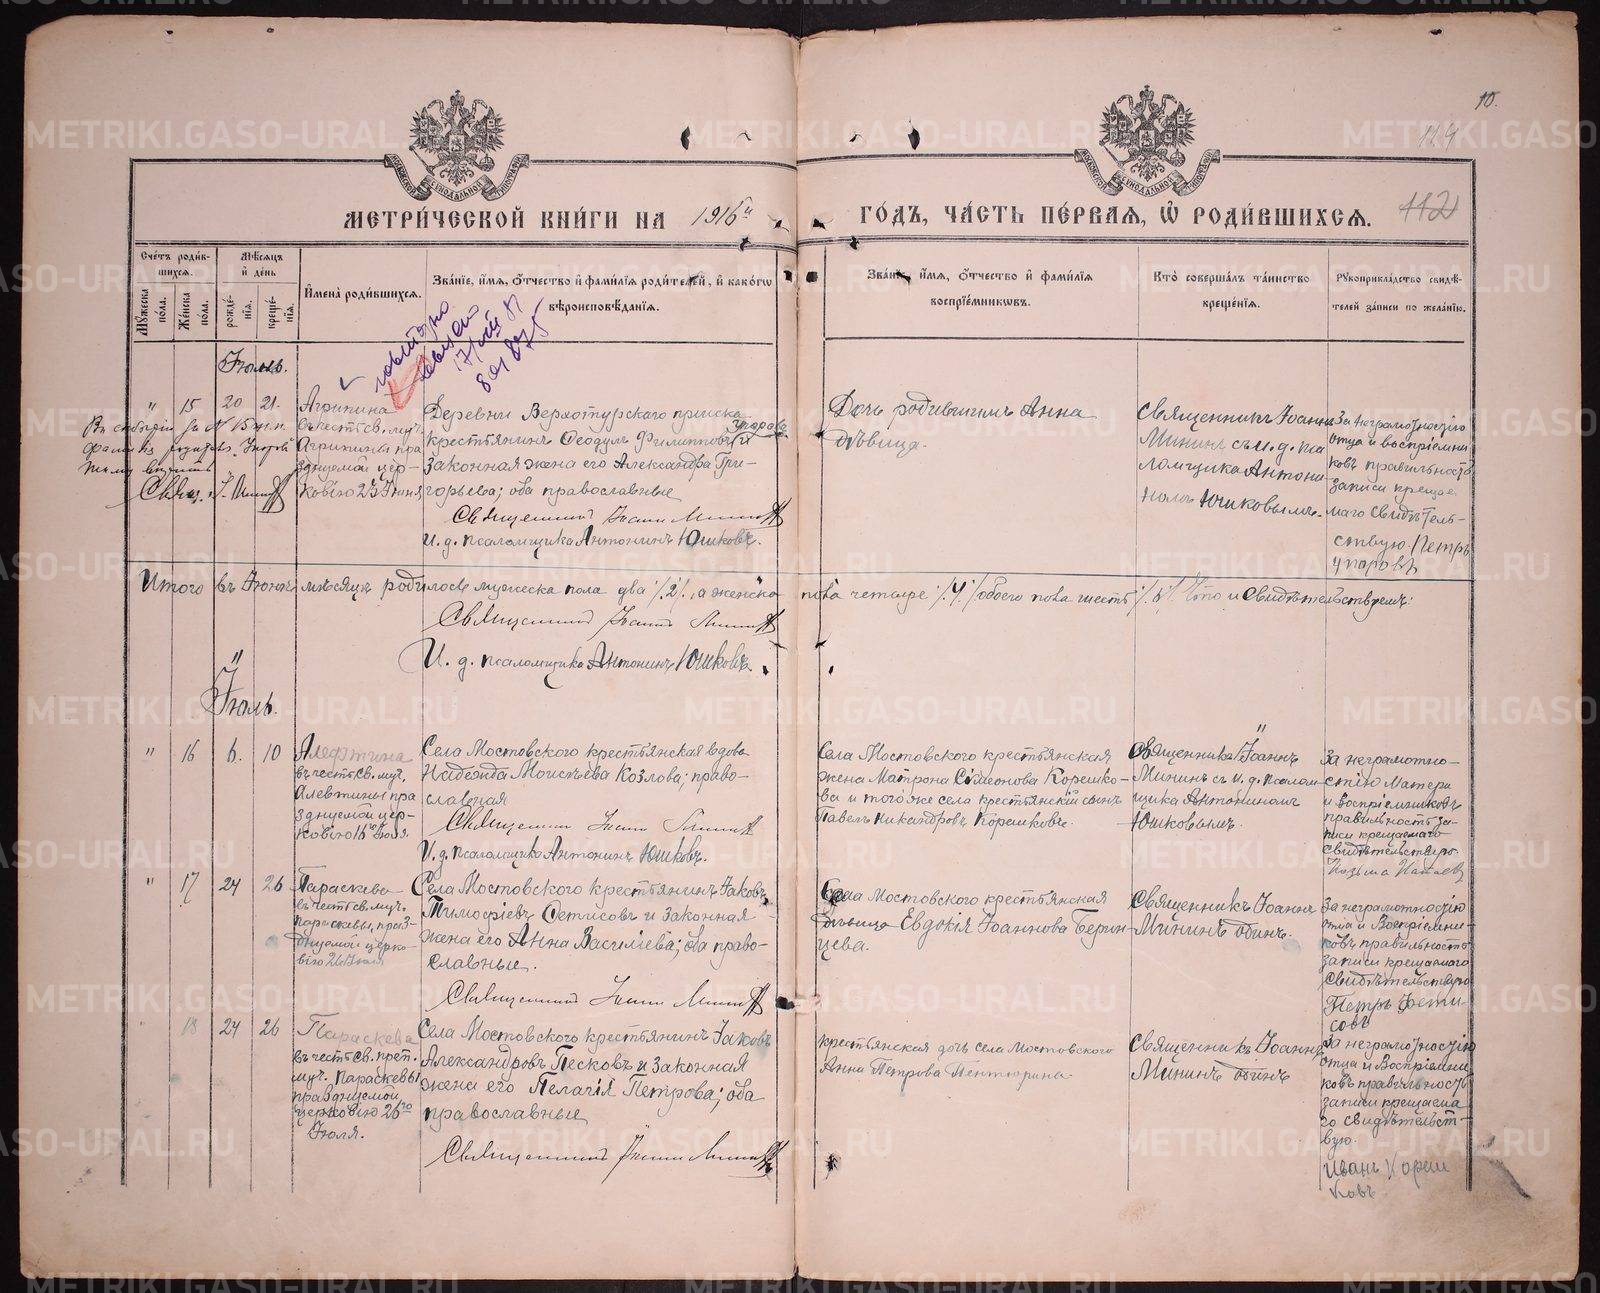 10.
114
112
МЕТРИЧЕСКОЙ КНИГИ НА 1916й ГОДЪ, ЧАСТЬ ПЕРВАЯ, Ѡ РОДИВШИХСЯ.
Счетъ родив-
шихся.
Мужеска пола.
Женска пола.
Мѣсяцъ
и день
рожде-
нія.
креще-
нія.
Имена родившихся.
Званіе, имя, отчество и фамилія родителей, и какого
вѣроисповѣданія.
Званіе, имя, отчество и фамилія
воспріемниковъ.
Кто совершалъ таинство
крещенія.
Рукоприкладство свидѣ-
телей записи по желанію.
повторно
17/
Іюнь.
" 15 20 21.
Агрипина
въ честь св. муч.
Агрипины пра
зднуемой цер-
ковію 23 Іюня
Деревни Верхотурскаго прииска
крестьянинъ Ѳеодулъ Филипповъ и
законная жена его Александра Гри-
горьева; оба православные
Священникъ Іоаннъ Мининъ
И. д. псаломщика Антонинъ Юшковъ.
Дочь родившихъ Анна
дѣвица.
Священникъ Іоаннъ
Мининъ съ и. д. пса
ломщика Антони
номъ Юшковымъ.
За неграмотностію
отца и воспріемни
ковъ правильность
записи крещае
маго свидѣтель-
ствую Петръ
Итого въ Іюнѣ мѣсяцѣ родилось мужеска пола два /2/, а женска пола четыре /4/ обоего пола шесть /6/ Что и свидѣтельствуемъ:
Священникъ Іоаннъ Мининъ
И. д. псаломщика Антонинъ Юшковъ.
Іюль.
" 16 6. 10
Алефтина
въ честь св. муч.
Алевтины пра
зднуемой цер-
ковію 16го Іюля.
Села Мостовского крестьянская вдова
Надежда Моисѣева Козлова; право-
славная
Священникъ Іоаннъ Мининъ
И. д. псаломщика Антонинъ Юшковъ.
Села Мостовского крестьянская
жена Матрона Симеонова Корешко-
ва и того же села крестьянскій сынъ
Павелъ Никандровъ Корешковъ.
Священникъ Іоаннъ
Мининъ съ и. д. псалом
щика Антониномъ
Юшковымъ.
За неграмотно-
стію матери
и воспріемниковъ
правильность за-
писи крещаемаго
свидѣтельствую
Козьма
" 17 24 26
Параскева
въ честь св. муч.
Параскевы, праз-
днуемой церко-
вію 26 Іюля
Села Мостовского крестьянинъ Іаковъ
Тимофіевъ Фетисовъ и законная
жена его Анна Василіева; оба право-
славные.
Священникъ Іоаннъ Мининъ
Села Мостовского крестьянская
дѣвица Евдокія Іоаннова Берин
цева.
Священникъ Іоаннъ
Мининъ одинъ.
За неграмотностію
отца и воспріемни-
ковъ правильность
записи крещаемаго
свидѣтельствую
Петръ Фети-
совъ
18 24 26
Параскева
въ честь св. преп.
муч. Параскевы
празднуемой
церковію 26го
Іюля.
Села Мостовского крестьянинъ Іаковъ
Александровъ Песковъ и законная
жена его Пелагія Петрова; оба
православные
Священникъ Іоаннъ Мининъ
крестьянская дочь села Мостовского
Анна Петрова Пентюрина
Священникъ Іоаннъ
Мининъ одинъ
За неграмотностію
отца и воспріемни
ковъ правильность
записи крещаема
го свидѣтельст-
вую.
Иванъ Кореш
ковъ